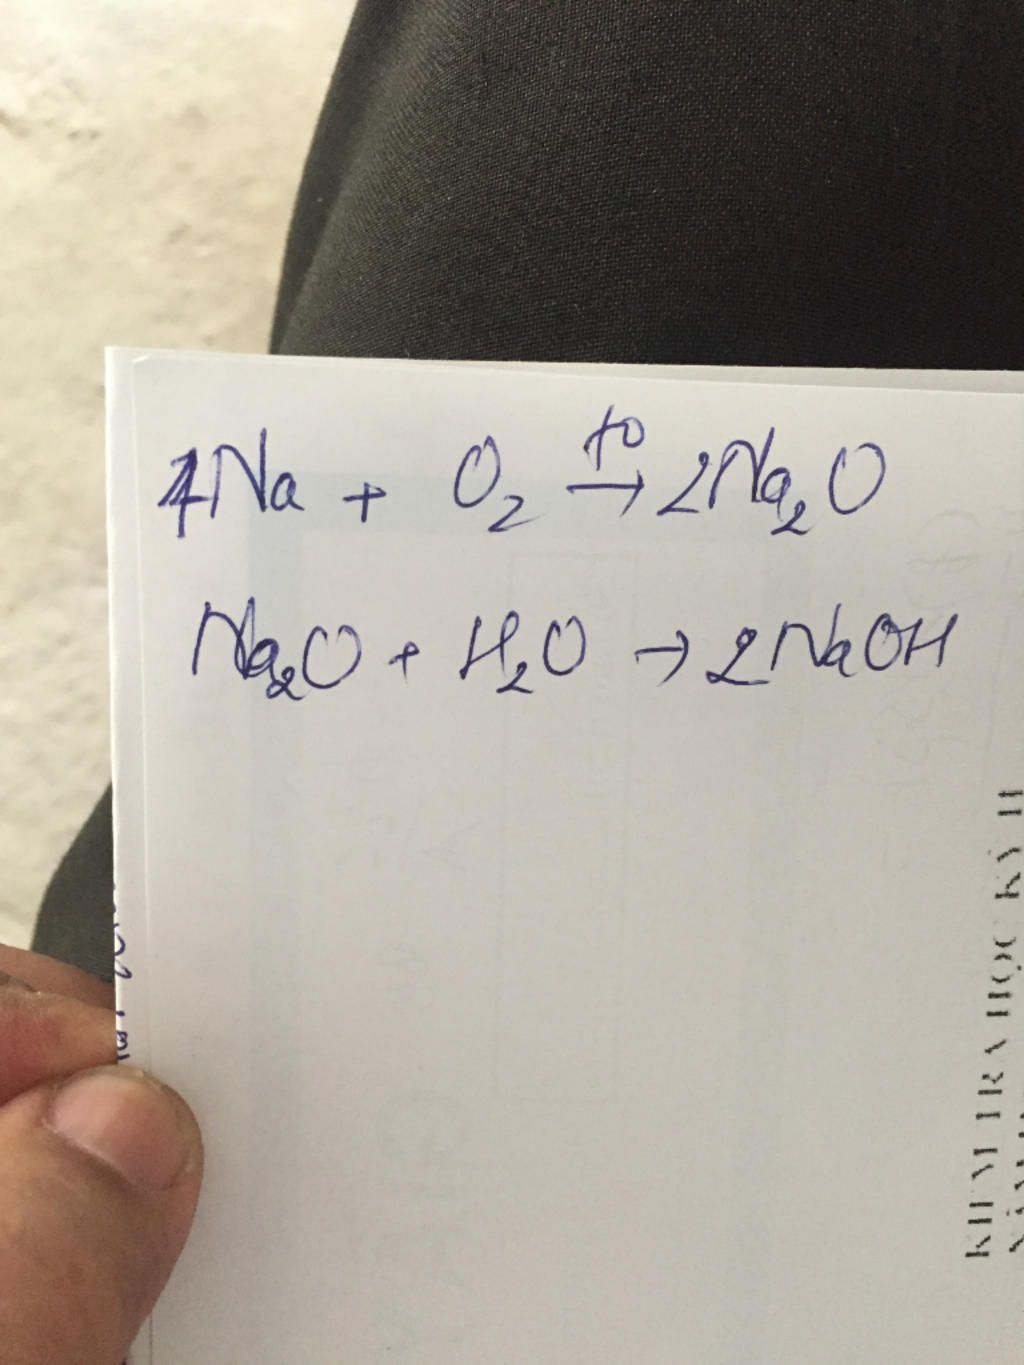 4Na + O₂ →(t°) 2Na₂O
Na₂O + H₂O → 2NaOH
KIỂM TRA HỌC KỲ II